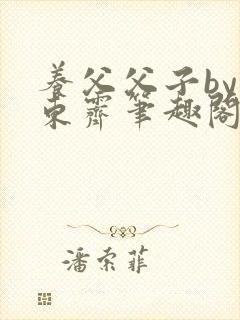 养父父子by
东霽笔趣阁
潘索菲